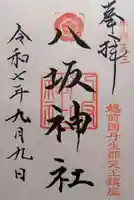 奉拝
越前國丹生郡天王鎮座
八坂神社
令和七年九月九日